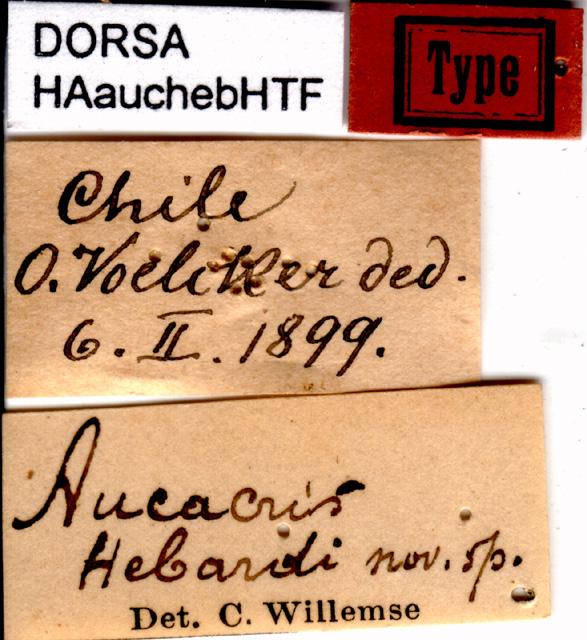 DORSA
HAauchebHTF
Type
Chile
O. Voelcker ded.
6. II. 1899.
Aucacris
Hebardi nov. sp.
Det. C. Willemse